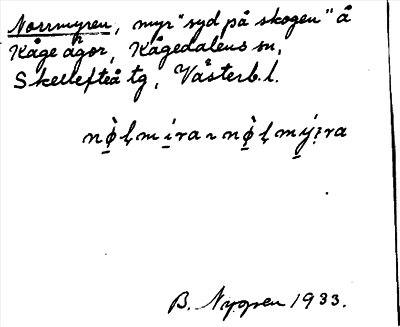 Norrmyren, myr "syd på skogen" å
Kåge ägor, Kågedalens sn,
Skellefteå tg, Västerb. l.
B. Nygren 1933.